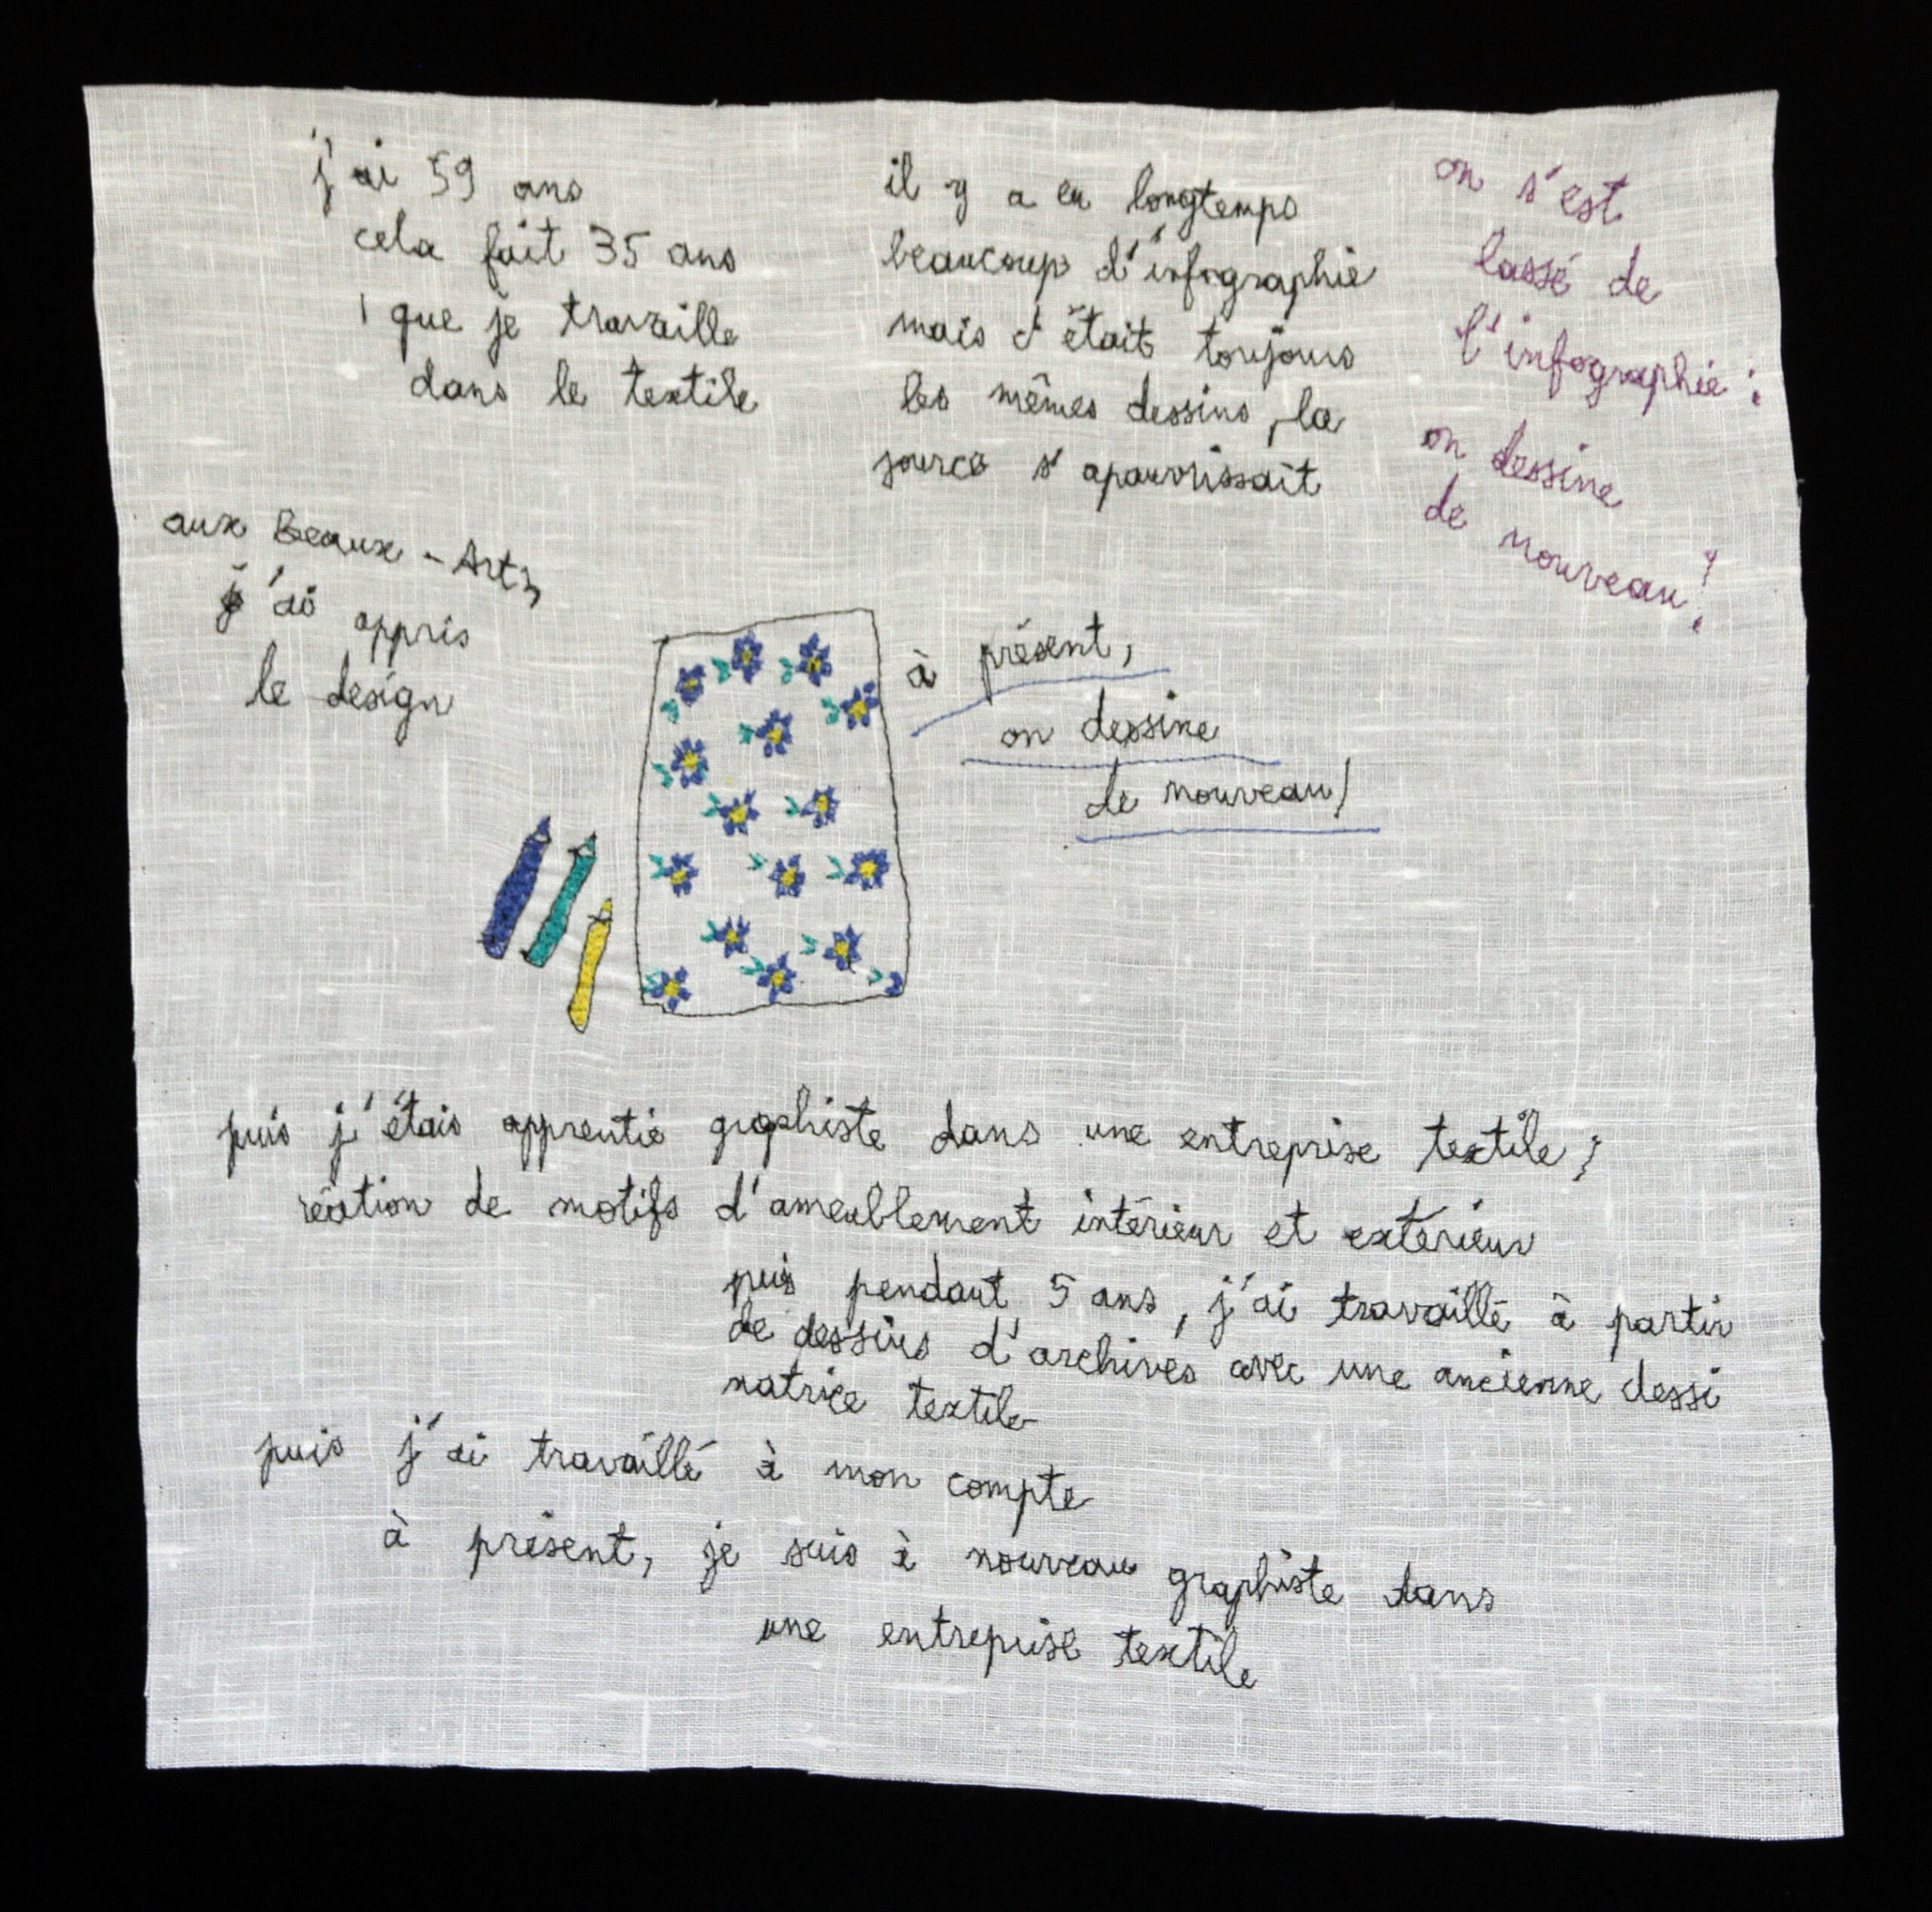 j'ai 59 ans
cela fait 35 ans
que je travaille
dans le textile
il y a eu longtemps
beaucoup d'infographie
mais c'était toujours
les mêmes dessins, la
source s'apauvrissait
on s'est
lassé de
l'infographie :
on dessine
de nouveau !
aux Beaux-Arts
j'ai appris
le design
à présent,
on dessine
de nouveau !
puis j'étais apprentie graphiste dans une entreprise textile ;
réation de motifs d'ameublement intérieur et extérieur
puis pendant 5 ans, j'ai travaillé à partir
de dessins d'archives avec une ancienne dessi
natrice textile
puis j'ai travaillé à mon compte
à présent, je suis à nouveau graphiste dans
une entreprise textile